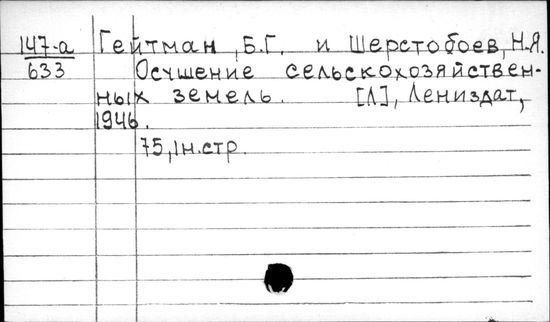 147-а Гейтман, Б.Г. и Шерстобоев, Н.Я.
633 Осушение сельскохозяйствен-
ных земель. [Л], Лениздат,
1946.
75, 1н.стр.